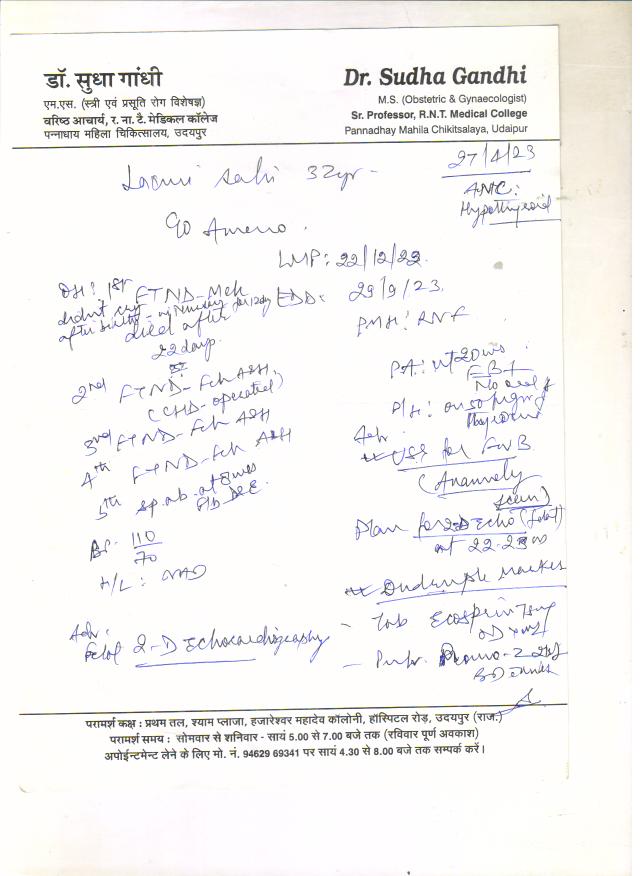 डॉ. सुधा गांधी
एम.एस. (स्त्री एवं प्रसूति रोग विशेषज्ञ)
वरिष्ठ आचार्य, र. ना. टै. मेडिकल कॉलेज
पन्नाधाय महिला चिकित्सालय, उदयपुर
Dr. Sudha Gandhi
M.S. (Obstetric & Gynaecologist)
Sr. Professor, R.N.T. Medical College
Pannadhay Mahila Chikitsalaya, Udaipur
27/4/23
32yr -
ANC:
Hypothyroid
LMP: 22/12/22
EDD: 29/9/23.
OH: 1st FTND - Mch
didn't cry
after birth - for 12 day
died after
22 days.
2nd FTND - Fch A&H
(CHD - operated)
3rd FTND - Fch A&H
4th FTND - Fch A&H
5th sp. ab. at 8 wks
BP. 110
70
H/L: NAD
PA: ut 20 ws
FB+
Adv:
USG for FWB
(Anamoly
scan)
Plan for 2D Echo (fetal)
at 22-23 ws
Quadruple Marker
Adv:
Fetal 2-D Echocardiography
- Tab Ecosprin 75mg
OD
परामर्श कक्ष : प्रथम तल, श्याम प्लाजा, हजारेश्वर महादेव कॉलोनी, हॉस्पिटल रोड़, उदयपुर (राज.)
परामर्श समय : सोमवार से शनिवार - सायं 5.00 से 7.00 बजे तक (रविवार पूर्ण अवकाश)
अपोईन्टमेन्ट लेने के लिए मो. नं. 94629 69341 पर सायं 4.30 से 8.00 बजे तक सम्पर्क करें।